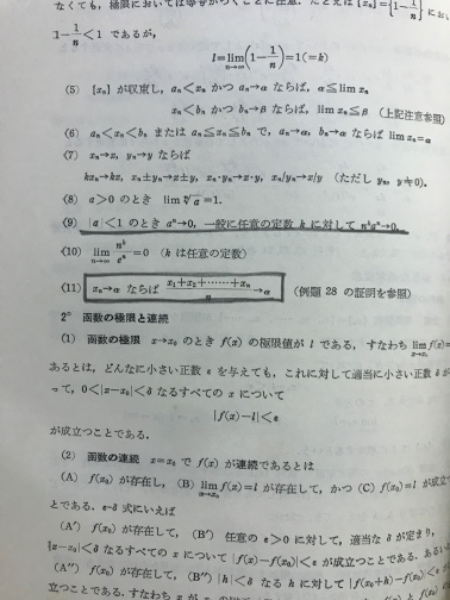 なくても，極限においては等号がつくことに注意．たとえば {xₙ}={1-1/n} におい
1-1/n<1 であるが，
l=lim_{n→∞}(1-1/n)=1(=k)
(5) {xₙ} が収束し，aₙ<xₙ かつ aₙ→α ならば，α≦lim xₙ
xₙ<bₙ かつ bₙ→β ならば，lim xₙ≦β (上記注意参照)
(6) aₙ<xₙ<bₙ または aₙ≦xₙ≦bₙ で，aₙ→α，bₙ→α ならば lim xₙ=α
(7) xₙ→x，yₙ→y ならば
kxₙ→kx，xₙ±yₙ→x±y，xₙ·yₙ→x·y，xₙ/yₙ→x/y (ただし yₙ，y≠0)．
(8) a>0 のとき lim ⁿ√a=1．
(9) |a|<1 のとき aⁿ→0，一般に任意の定数 k に対して nᵏaⁿ→0．
(10) lim_{n→∞} nᵏ/eⁿ=0 (k は任意の定数)
(11) xₙ→α ならば (x₁+x₂+……+xₙ)/n→α (例題 28 の証明を参照)
2° 函数の極限と連続
(1) 函数の極限 x→x₀ のとき f(x) の極限値が l である，すなわち lim_{x→x₀} f(x)=
あるとは，どんなに小さい正数 ε を与えても，これに対して適当に小さい正数 δ が
って，0<|x-x₀|<δ なるすべての x について
|f(x)-l|<ε
が成立つことである．
(2) 函数の連続 x=x₀ で f(x) が連続であるとは
(A) f(x₀) が存在し，(B) lim_{x→x₀} f(x)=l が存在して，かつ (C) f(x₀)=l が成立つ
とである．ε-δ 式にいえば
(A′) f(x₀) が存在して，(B′) 任意の ε>0 に対して，適当な δ が定まり，
|x-x₀|<δ なるすべての x について |f(x)-f(x₀)|<ε が成立つことである．あるい
(A″) f(x₀) が存在して，(B″) |h|<δ なる h に対して |f(x₀+h)-f(x₀)|<ε が
立つことである．すなわち x が